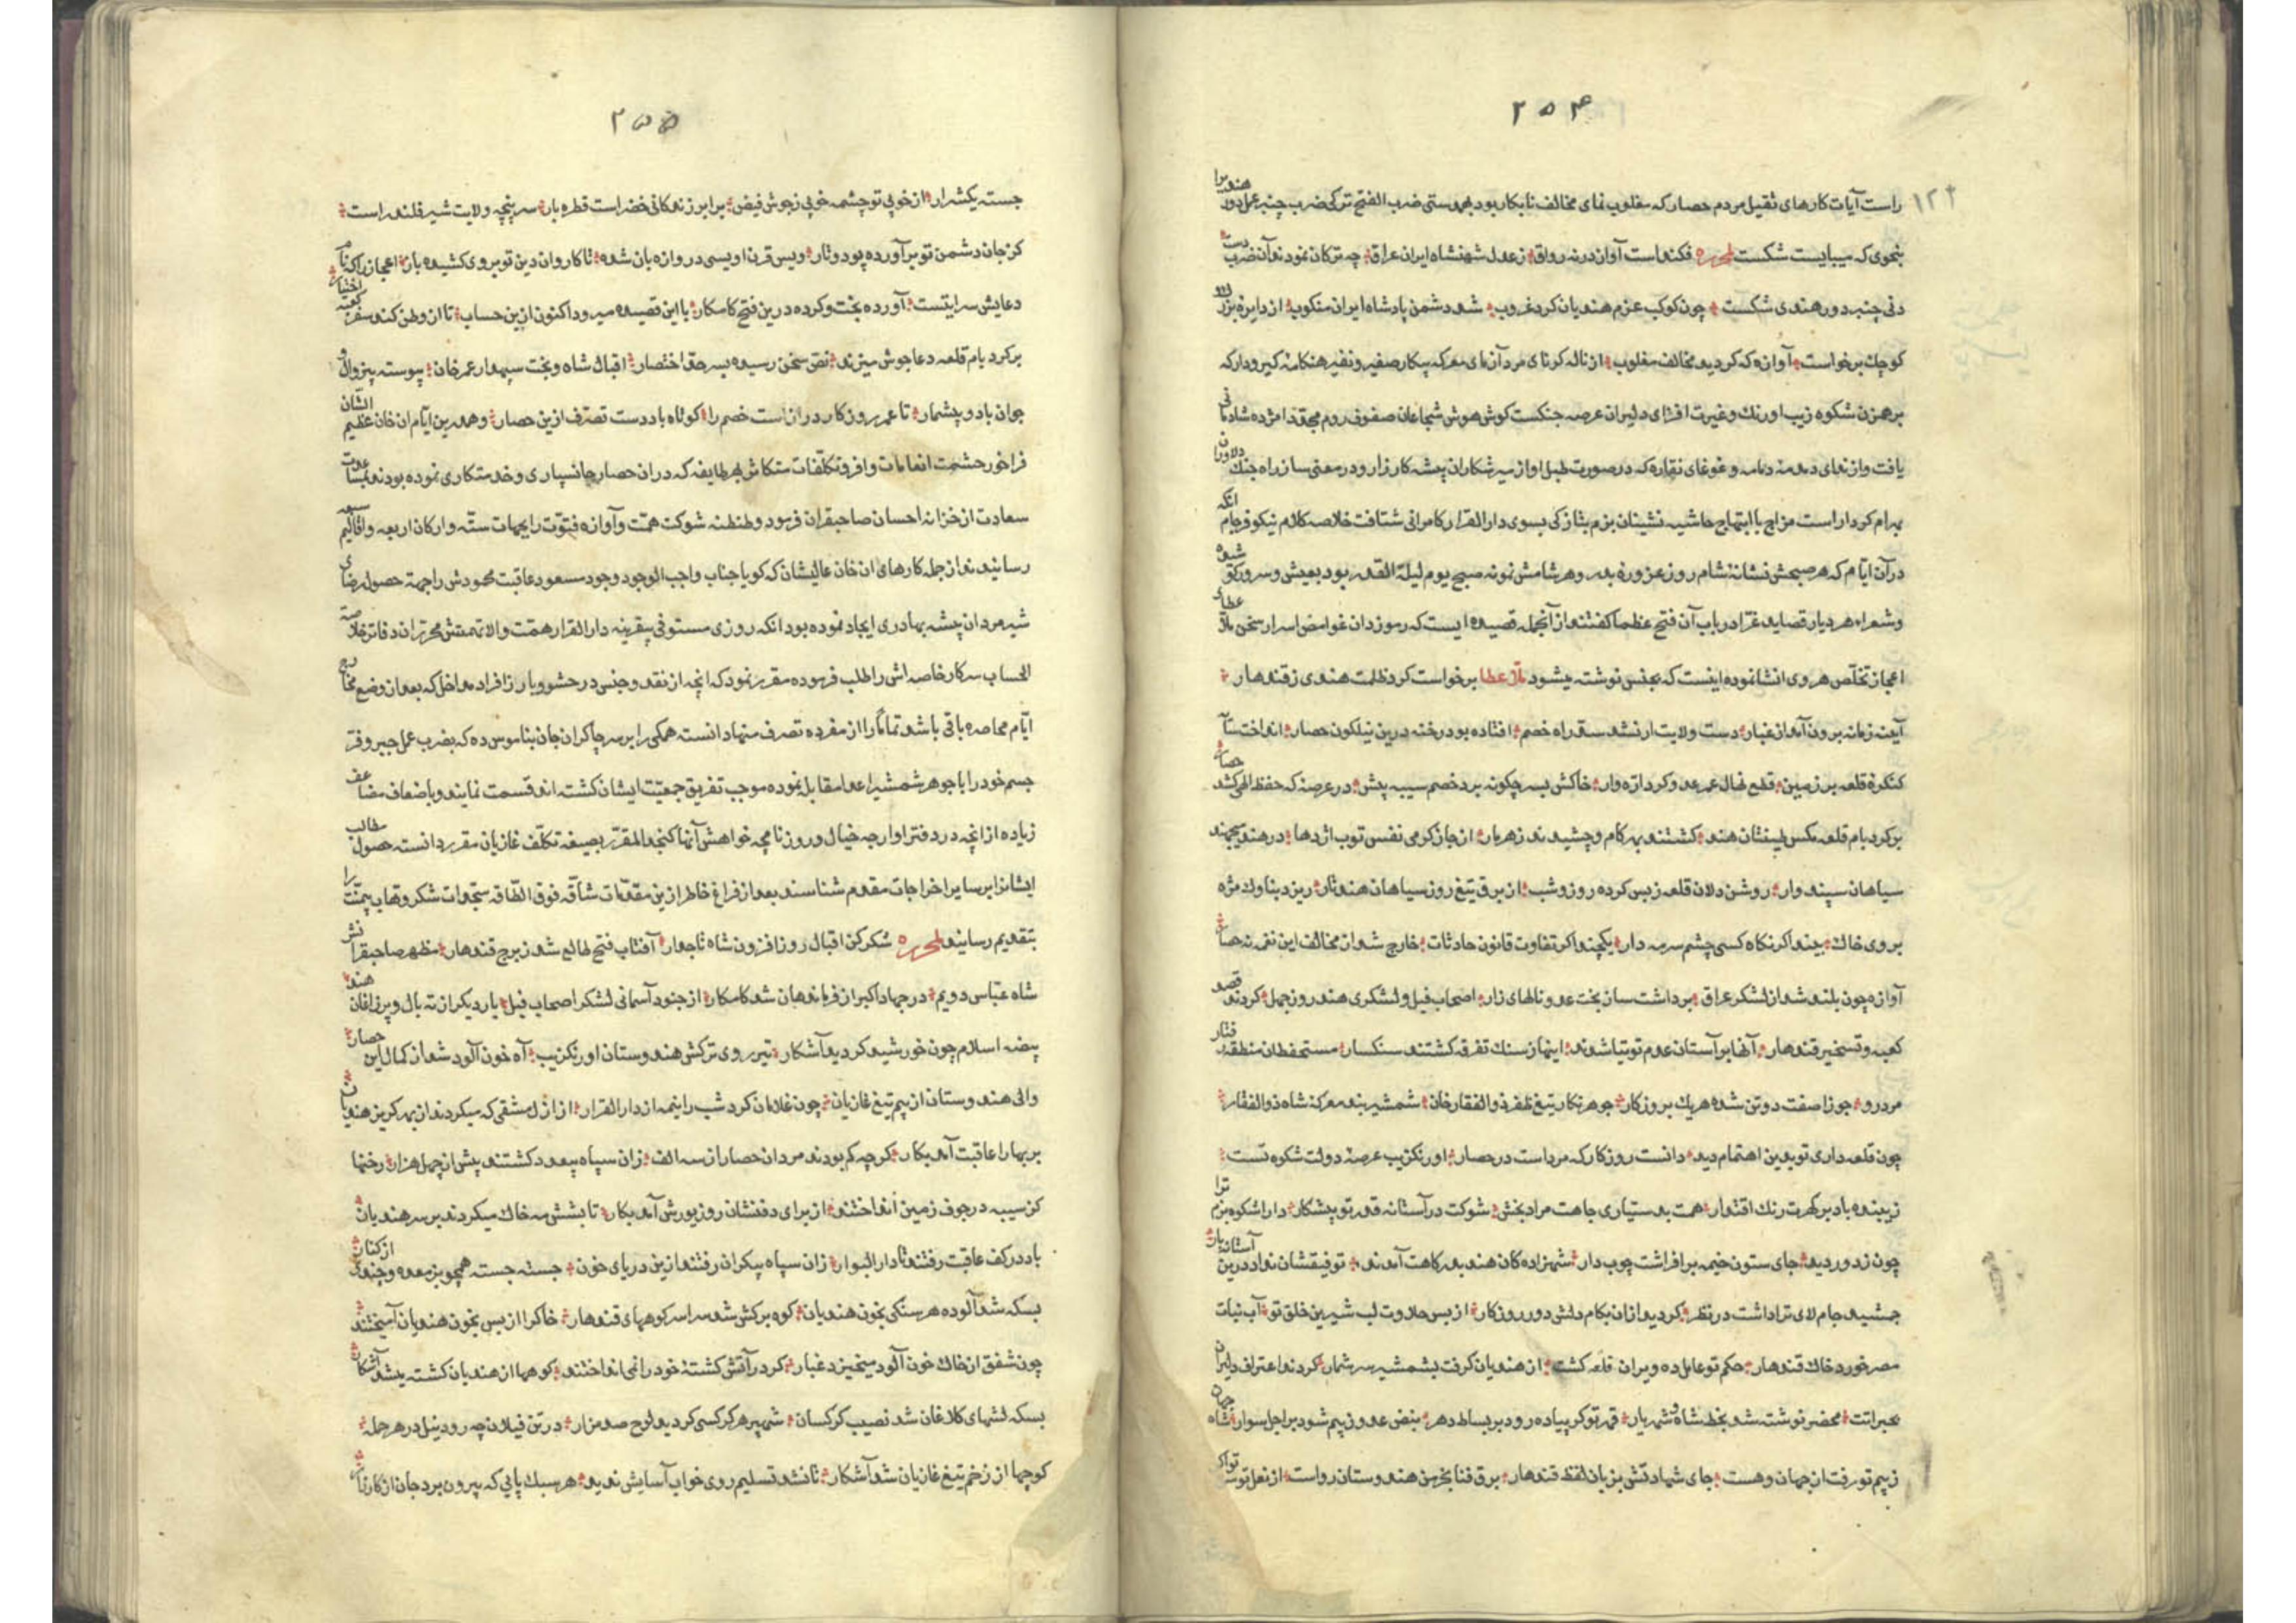 ۲۵۴
۱۲۴
راست آیات کارهای ثقیل مردم حصار که مغلوب نمای مخالف نابکار بود بهمدستی ضرب الفتح ترکی ضرب چنبر عمل دور هندیرا
بنحوی که میبایست شکست لمحرره فکنده است آوازه درنه رواق زعدل شهنشاه ایران عراق چه ترکان نمودند آن ضرب دست
دنی چنبر دور هندی شکست چون کوکب عزم هندیان کرد غروب شد دشمن پادشاه ایران منکوب از دایره بزرک
کوچک برخواست آوازه که کردید مخالف مغلوب از ناله کرنای مرد آزمای معرکه پیکار صفیر و نفیر هنکامه کیرودار که
برهمزن شکوه زیب اورنک و غیرت افزای دلیران عرصه جنکست کوش هوش شجاعان صفوف رزم مجددا مژده شادمانی
یافت و از ندای دمدمه دمامه و غوغای نقاره که در صورت طبل اواز سر شکاران بیشه کارزار و در معنی ساز راه جنک دلاوران
بهرام کردار است مزاج با ابتهاج حاشیه نشینان بزم یشاز کی بسوی دار القرار کامرانی شتافت خلاصه کلام نیکو فرجام انکه
در آن ایام که هر صبحش نشانه شام روز عز و ره بدر و هر شامش نمونه صبح یوم لیلة القدر بود بعیش و سرور کو شیده
و شعراء هر دیار قصاید غرّا در باب آن فتح عظما کفتند از آنجمله قصیده ایست که رموز دان غوامض اسرار سخن ملا عطاء
اعجاز تخلّص هروی انشا نموده اینست که بجنس نوشته میشود ملا عطا برخواست کرد ظلمت هندی ز قندهار
آینه زمانه برون آمد از غبار دست ولایت ار نشد سد راه خصم افتاده بود رخنه درین نیلکون حصار انداخت تا
کنکره قلعه بر زمین قطع نهال عمر عدو کرد اره وار خاکش بسر چکونه برد خصم سیبه پیش در عرصه که حفظ الهی کشد حصار
بر کرد بام قلعه مکس طینتان هند کشتند بهر کام و چشیدند زهر بار از جاز کرمی نفس توب اژدها در هند میجهند
سیاهان سپند وار روشن دلان قلعه ز بس کرده روز و شب از برق تیغ روز سیاهان هند تار ریزد بناوک مژه
بر وی خاک بیند اکر نکاه کسی چشم سرمه دار یکچند اکر تفاوت قانون حادثات خارج شد از مخالف این نغمه حصار
آوازه چون بلند شد از لشکر عراق برداشت ساز بخت عدو نالهای زار اصحاب فیل و لشکری هند روز جمل کردند قصد
کعبه و تسخیر قندهار آنها بر آستان عدم توتیا شدند اینها ز سنک تفرقه کشتند سنکسار مستحفظان منطقه
مرد رو جوزا صفت دوتن شده هر یک بروز کار جوهر نکار تیغ ظفر ذو الفقار خان شمشیر بند معرکه شاه ذو الفقار
چون قلعه داری تو بدین اهتمام دید دانست روزکار که مرد است در حصار اورنکزیب عرصه دولت شکوه تست
زیبنده باد بر کهرت رنک اقتدار همت بدستیاری جاهت مراد بخش شوکت در آستانه قدر تو پیشکار دارا شکوه بزم ترا
چون ز دور دید جای ستون خیمه بر افراشت چوب دار شهزاده کان هند بدرکاهت آمدند توفیقشان نداد درین آستانه بار
جمشید جام لای ترا داشت در نظر کردید از ان بکام دلش دور روزکار از بس حلاوت لب شیرین خلق تو آب نبات
مصر خورد خاک قندهار حکم تو عامل ده ویران قلعه کشت از هندیان کرفت بشمشیر سر شمار کردند اعتراف دلیران
بجراتت محضر نوشته شد بخط شاه و شهریار قهر تو کر پیاده رود بر بساط دهر بنض عدو ز بیم شود بر اجل سوار شاه جهان
ز بیم تو رفت از جهان و هست جای شهادتش بزبان لفظ قندهار برق فنا بخرمن هندوستان رواست از نعل توس
۲۵۵
جسته یکشرار از خوبی تو چشمه خوبی ز جوش فیض برابر زندکانی خضر است قطره بار سر پنجه ولایت شیر فلند راست
کز جان دشمن تو بر آورده پود و تار ویس قرن اویسی دروازه بان شده تا کاروان دین تو بروی کشیده بار اعجاز را که نام
دعایش سرایتست آورده بخت و کرده درین فتح کامکار با این قصیده میرود اکنون ازین حساب تا از وطن کند سفر کعبه اختیار
بر کرد بام قلعه دعا جوش میزند نص سخن رسیده بسر حد اختصار اقبال شاه و بخت سپهدار عمر خان پیوسته بیزوال و
جوان باد و بیشمار تا عمر روز کار درازاست خصم را کوتاه باد دست تصرف ازین حصار و همدرین ایام ان خان عظیم الشان
فراخور حشمت انعامات وافر و تکلّفات متکاثر بهر طایفه که در ان حصار جانسپاری و خدمتکاری نموده بودند
سعادت از خزانه احسان صاحبقران فرمود و طنطنه شوکت همّت و آوازه فتوّت را بجهات ستّه و ارکان اربعه و اقالیم سبعه
رسانید و از جمله کارهای ان خان عالیشان که کویا جناب واجب الوجود وجود مسعود عاقبت محمودش را جهة حصول رضای
شیر مردان بیشه بهادری ایجاد نموده بود انکه روزی مستوفی بیقرینه دار القرار همّت والا نهمتش محرّران دفاتر خلاصة
الحساب سرکار خاصه اش را طلب فرموده مقرر نمود که انچه از نقد و جنس در حشو و بارز افراد مداخل که بعد از وضع مخارج
ایّام محاصره باقی باشد تماماً را از مفرده تصرف منهاد انسته همکی را بر سر چاکران جان بناموس ده که بضرب عمل جبر و فر
جسم خود را با جوهر شمشیر اعدا مقابل نموده موجب تفریق جمعیّت ایشان کشته اند قسمت نمایند و باضعاف مضاعف
زیاده از انچه در دفتر اوارجه خیال و روزنامچه خواهش آنها کنجد المقرّر بصیغه تکلّف غازیان مقرر دانسته حصول مطالب
ایشانرا بر سایر اخراجات مقدم شناسند بعد از فراغ خاطر ازین مقدّمات شاقّه فوق الطّاقه سجدات شکر وهاب بیمنّت را
بتقدیم رسانید لمحرره شکر کز اقبال روز افزون شاه تاجدار آفتاب فتح طالع شد ز برج قندهار مظهر صاحبقرانش
شاه عبّاس دویم در جهاد اکبر از فرماندهان شد کامکار از جنود آسمانی لشکر اصحاب فیل بار دیکر از ته بال و پر زاغان هند
بیضه اسلام چون خورشید کردید آشکار تیر روی ترکش هندوستان اورنکزیب آه خون آلود شد از کمال این حصار
والی هندوستان از بیم تیغ غازیان چون غلامان کرد شب را بنه از دار القرار از ازل مشقی که میکردند از بهر کریز هندیان
بر بها را عاقبت آمد بکار کرچه کم بودند مردان حصار از سه الف زان سپاه بیعدد کشتند بیش از چهل هزار رخنها
کز سیبه در جوف زمین انداختند از برای دفنشان روز یورش آمد بکار تا بشش مه خاک میکردند بر سر هندیان
باد در کف عاقبت رفتند تا دار البوار زان سپاه بیکران رفتند ازین دریای خون جسته جسته همچو بز معده و چندی از کنار
بسکه شد آلوده هر سنکی بخون هندیان کوه برکش شد سراسر کوههای قندهار خاکرا از بس بخون هندیان آمیختند
چون شفق از خاک خون آلود میخیزد غبار کرد در آتش کشته خود را نمی انداختند کوهها از هندیان کشته میشد آشکار
بسکه لشهای کلاغان شد نصیب کرکسان شهپر هر کرکسی کردید لوح صد مزار در تن فیلان چه رود نیل در هر حمله
کوچها از زخم تیغ غازیان شد آشکار تا نشد تسلیم روی خواب آسایش ندید هر سبک پایی که بیرون برد جان از کارزار